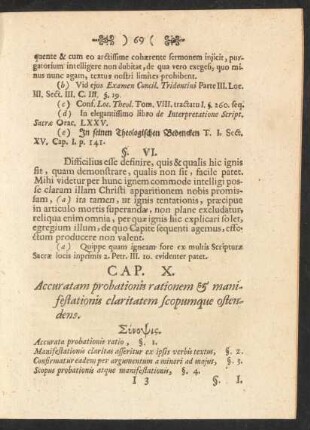 ) 69 (
quente & cum eo arctissime cohærente sermonem concit, pur-
gatorium intelligere non dubitat, de qua vero exegesi, quo mi-
nus nunc agam, textus nostri limites prohibent.
(b) Vid ejus Examen Concil. Tridentini Parte III. Loc.
III, Sect. III. C. III. §. 19.
(c) Conf. Loc. Theol. Tom. VIII. tractatu I. §. 260. seq.
(d) In elegantissimo libro de Interpretatione Script.
Sacræ Orat. LXXV.
(e) In seinen Theologischen Bedencken T. I. Sect.
XV, Cap. I. p. 141.
§. VI.
Difficilius esse definire, quis & qualis hic ignis
sit, quam demonstrare, qualis non sit, facile patet.
Mihi videtur per hunc ignem commode intelligi pos-
se clarum illam Christi apparitionem nobis promis-
sam, (a) ita tamen, ut ignis tentationis, præcipue
in articulo mortis superandæ, non plane excludatur,
reliqua enim omnia, per quæ ignis hic explicari solet,
egregium illum, de quo Capite sequenti agemus, effe-
ctum producere non valent.
(a) Quippe quam igneam fore ex multis Scripturæ
Sacræ locis inprimis 2. Petr. III. 10. evidenter patet.
CAP. X.
Accuratam probationis rationem & mani-
festationis claritatem scopumque osten-
dens.
Σύνοψις.
Accurata probationis ratio, §. 1.
Manifestationis claritas asseritur ex ipsis verbis textus, §. 2.
Confirmatur eadem per argumentum a minori ad majus, §. 3.
Scopus probationis atque manifestationis, §. 4.
I 3 §. I.